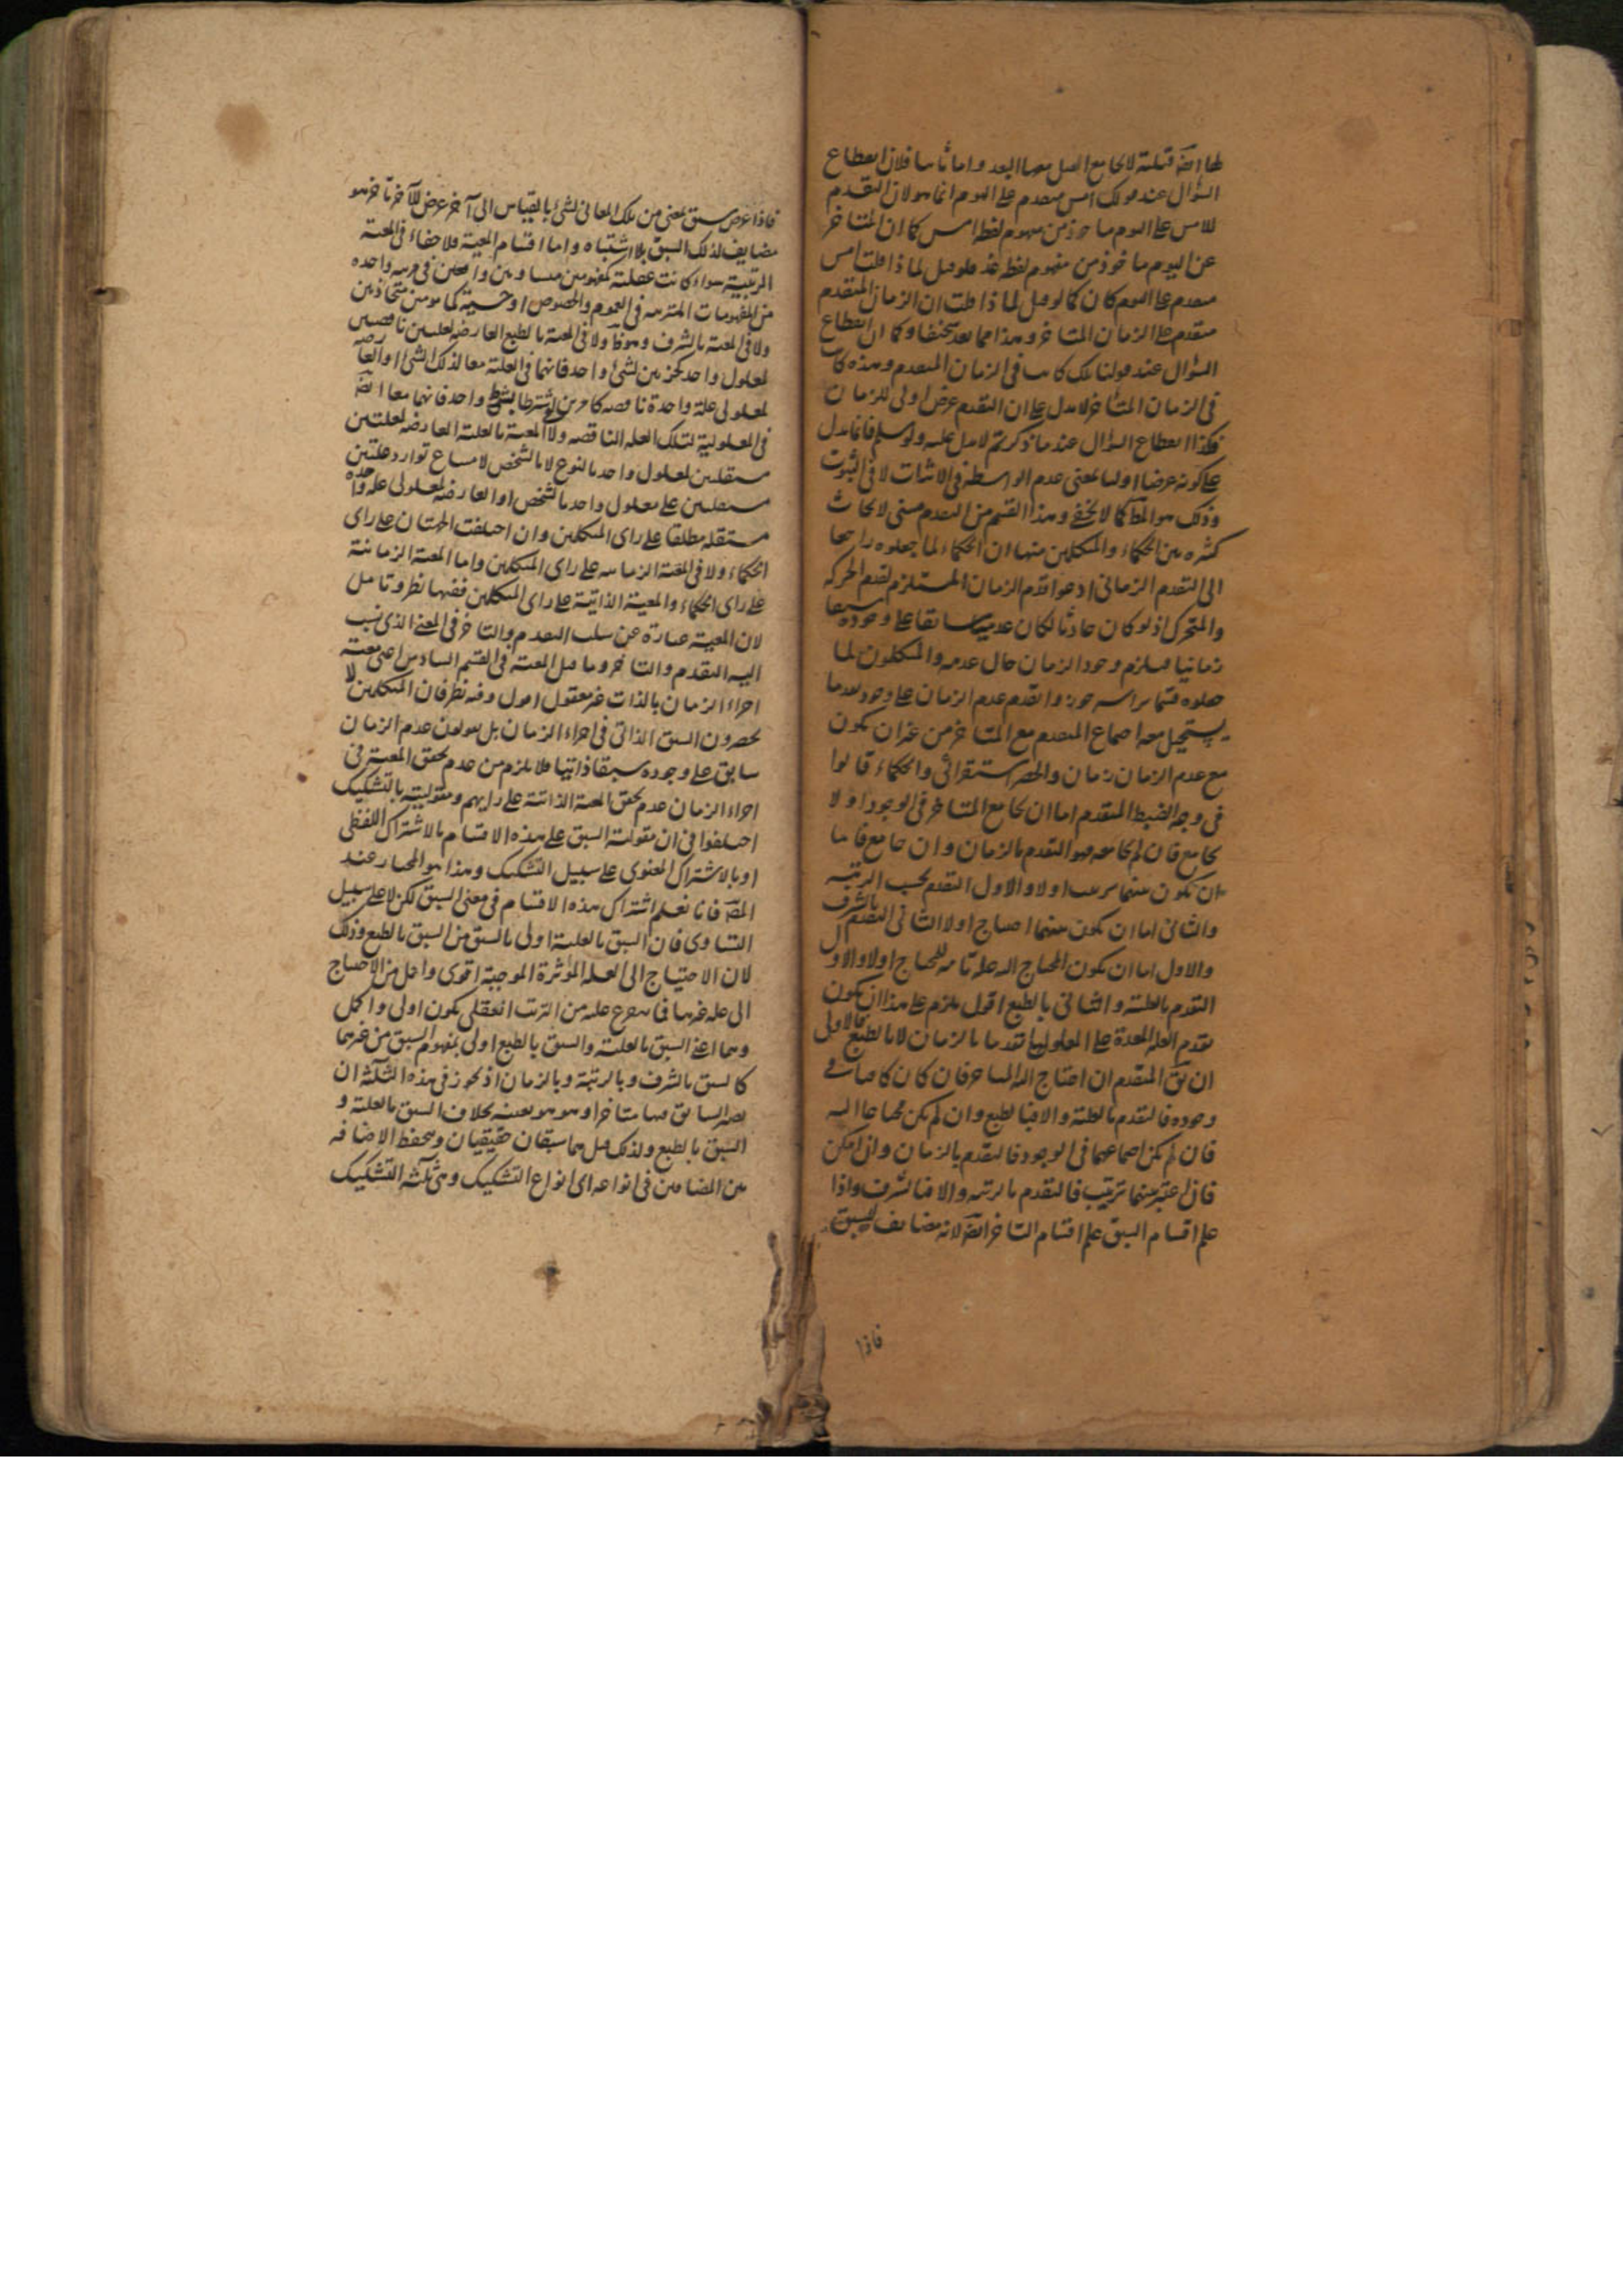 لها ايضا قبلية لا يجامع القبل معها البعد واما ثانيا فلان انقطاع
السؤال عند قولك امس متقدم على اليوم انما هو لان التقدم
للامس على اليوم ماخوذ من مفهوم لفظ امس كما ان المتاخر
عن اليوم ماخوذ من مفهوم لفظ غد فلو قيل لما ذا قلت امس
متقدم على اليوم كان كما لو قيل لما ذا قلت ان الزمان المتقدم
متقدم على الزمان المتاخر وهذا مما يعد سخيفا وكما ان انقطاع
السؤال عند قولنا تلك كانت فى الزمان المتقدم وهذه كانت
فى الزمان المتاخر لا يدل على ان التقدم عرض اولى للزمان
فكذا انقطاع السؤال عند ما ذكرتم لا يدل عليه ولو سلم فانما يدل
على كونه عرضا اوليا بمعنى عدم الواسطة فى الاثبات لا فى الثبوت
وذلك هو المط كما لا يخفى وهذا القسم من التقدم مبنى لابحاث
كثيرة بين الحكماء والمتكلمين منها ان الحكماء لما جعلوه راجعا
الى التقدم الزمانى ادعوا قدم الزمان المستلزم لقدم الحركة
والمتحرك اذ لو كان حادثا لكان عدمه سابقا على وجوده سبقا
زمانيا فيلزم وجود الزمان حال عدمه والمتكلمون لما
جعلوه قسما براسه جوزوا تقدم عدم الزمان على وجوده بما
يستحيل معه اجتماع المتقدم مع المتاخر من غير ان يكون
مع عدم الزمان زمان والحصر استقرائى والحكماء قالوا
فى وجه الضبط المتقدم اما ان يجامع المتاخر فى الوجود او لا
يجامع فان لم يجامعه فهو التقدم بالزمان وان جامع فاما
ان يكون بينهما ترتب اولا والاول التقدم بحسب الرتبة
والثانى اما ان يكون بينهما احتياج اولا الثانى التقدم بالشرف
والاول اما ان يكون المحتاج اليه علة تامة للمحتاج اولا والاول
التقدم بالعلية والثانى بالطبع اقول يلزم على هذا ان يكون
تقدم العلة المعدة على المعلول تقدما بالزمان لا بالطبع فالاولى
ان يق المتقدم ان احتاج اليه المتاخر فان كان كافيا فى
وجوده فالتقدم بالعلية والا فبالطبع وان لم يكن محتاجا اليه
فان لم يكن اجتماعهما فى الوجود فالتقدم بالزمان وان امكن
فان اعتبر بينهما ترتيب فالتقدم بالرتبة والا فبالشرف واذا
علم اقسام السبق علم اقسام التاخر ايضا لانه مضايف للسبق
فاذا
فاذا عرض سبق بمعنى من تلك المعانى لشئ بالقياس الى آخر عرض للآخر تاخر هو
مضايف لذلك السبق بلا اشتباه واما اقسام المعية فلا خفاء فى المعية
الرتبية سواء كانت عقلية كمفهومين متساويين واقعين فى مرتبة واحدة
من المفهومات المترتبة فى العموم والخصوص او حسية كمامومين متحاذيين
ولا فى المعية بالشرف وهو ظ ولا فى المعية بالطبع العارضة لعلتين ناقصتين
لمعلول واحد كجزئين لشئ واحد فانهما فى العلية معا لذلك الشئ او العارضة
لمعلولى علة واحدة ناقصة كامرين اشترطا بشرط واحد فانهما معا ايضا
فى المعلولية لتلك العلة الناقصة ولا المعية بالعلية العارضة لعلتين
مستقلتين لمعلول واحد بالنوع لا بالشخص لامتناع توارد علتين
مستقلتين على معلول واحد بالشخص او العارضة لمعلولى علة واحدة
مستقلة مطلقا على راى المتكلمين وان اختلفت الجهتان على راى
الحكماء ولا فى المعية الزمانية على راى المتكلمين واما المعية الزمانية
على راى الحكماء والمعية الذاتية على راى المتكلمين ففيها نظر وتامل
لان المعية عبارة عن سلب التقدم والتاخر فى المعنى الذى نسب
اليه التقدم والتاخر وما قيل المعية فى القسم السادس اعنى معية
اجزاء الزمان بالذات غير معقول اقول وفيه نظر فان المتكلمين لا
يحصرون السبق الذاتى فى اجزاء الزمان بل يقولون عدم الزمان
سابق على وجوده سبقا ذاتيا فلا يلزم من عدم تحقق المعية فى
اجزاء الزمان عدم تحقق المعية الذاتية على رايهم ومقوليته بالتشكيك
اختلفوا فى ان مقولية السبق على هذه الاقسام بالاشتراك اللفظى
او بالاشتراك المعنوى على سبيل التشكيك وهذا هو المختار عند
المص فانا نعلم اشتراك هذه الاقسام فى معنى السبق لكن لا على سبيل
التساوى فان السبق بالعلية اولى بالسبق من السبق بالطبع وذلك
لان الاحتياج الى العلة المؤثرة الموجبة اقوى واكمل من الاحتياج
الى علة غيرها فما يتفرع عليه من الترتب العقلى يكون اولى واكمل
وهما اعنى السبق بالعلية والسبق بالطبع اولى بمفهوم السبق من غيرهما
كالسبق بالشرف وبالرتبة وبالزمان اذ يجوز فى هذه الثلثة ان
يصير السابق فيها متاخرا وهو هو بعينه بخلاف السبق بالعلية و
السبق بالطبع ولذلك قيل هما سبقان حقيقيان وتنحفظ الاضافة
بين المضافين فى انواعه اى انواع التشكيك وهى ثلثة التشكيك